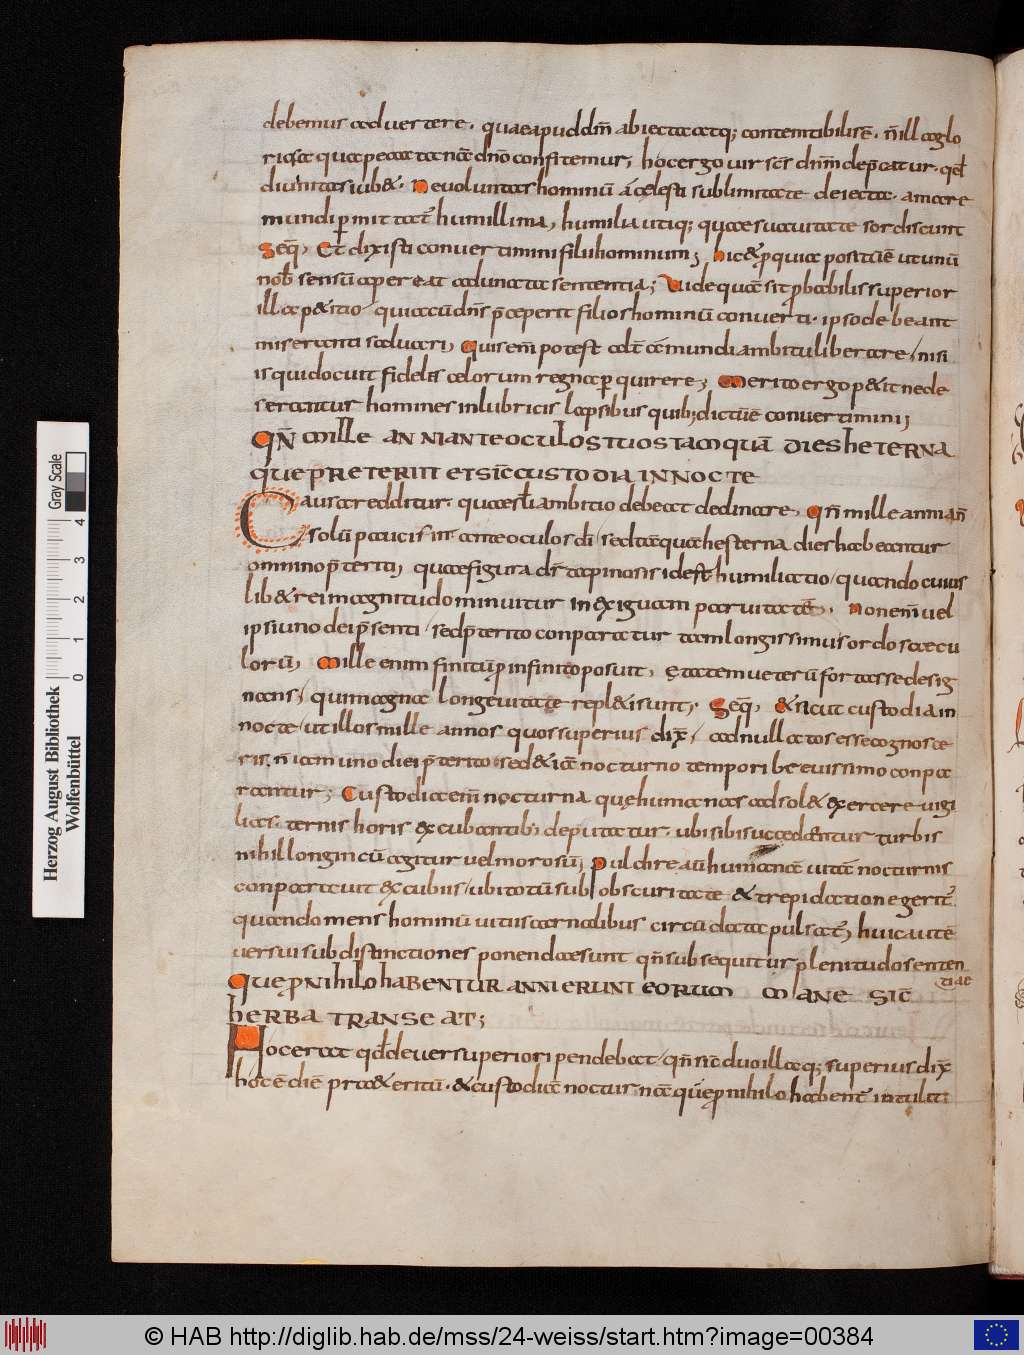 debemus advertere. quae apud dm̄ abiecta atq; contemtibilis ē. n̄ illa glo
riosa quae peccata nr̄a dn̄o confitemur, hoc ergo vir scs̄ dn̄m dep̄catur. qđ
divinitas iub&. Ne voluntas hominū a caelesti sublimitate deiecta. amare
mundi ꝑmittat̄ humillima, humilia utiq; quae suavitate sordiscunt
Seq̄, Et dixisti convertimini filii hominum; hic & ꝑquia positū ē ut unū
nob̄ sensū apereat adunata sententia; Vide quā sit ꝓbabilis superior
illa p&itio quia cū dn̄s p̄ceperit filios hominū converti. ipso debeant
miserante salvari, Quis em̄ potest alt̄ a mundi ambitu liberare, nisi
is qui docuit fideles caelorum regna ꝑquirere; Merito ergo p&it ne de
serantur homines in lubricis lapsibus quib; dictū ē convertimini;
QN̄ MILLE ANNI ANTE OCULOS TUOS TAMQUĀ DIES HETERNA
QUE PRETERIIT ET SIC̄ CUSTODIA IN NOCTE
Causa redditur. quae sc̄li ambitio debeat declinare, Qn̄ mille anni an̄
solū paucis in ante oculos dī, sed tā quā hesterna dies habeantur
omnino p̄teriti, quae figura dr̄ tapinosis id est humiliatio, quando cuius
lib& rei magnitudo minuitur in exiguam parvitatē. Non em̄ vel
ipsi uno diei p̄senti, sed p̄terito conparatur tam longissimus ordo saecu
lorū, Mille enim finitū ꝓ infinito posuit, ętatem veterū fortasse desig
nans, qui magna longevitate repl&i sunt,. Seq̄, & sicut custodia in
nocte, ut illos mille annos quos superius dix̄, ad nulla tos esse cognosce
ris. n̄ iam uno diei p̄terito, sed & iā nocturno tempori brevissimo conpa
rantur; Custodia em̄ nocturna quę humanas ad sol& exercere vigi
lias. ternis horis excubantib; deputatur. ubi sibi succedentur turbis
nihil longincū agitur vel morosū, Pulchre aū humanā vitā nocturnis
conparavit excubiis, ubi totū sub obscuritate & trepidatione gerit̄
quando mens hominū vitiis carnalibus circūdata pulsat̄, huic autē
versui sub distinctiones ponendae sunt qn̄ subsequitur plenitudo senten
tiae
QUE ꝒNIHILO HABENTUR ANNI ERUNT EORUM MANE SIC̄
HERBA TRANSEAT;
Hoc erat qđ de versu superiori pendebat, qn̄ sic̄ duo illa q; superius dix̄
hoc ē diē pr&a&eritū. & custodiā nocturnā quę ꝓnihilo habent̄ intulit;
Herzog August Bibliothek
Wolfenbüttel
Gray Scale
0 1 2 3 4
© HAB http://diglib.hab.de/mss/24-weiss/start.htm?image=00384